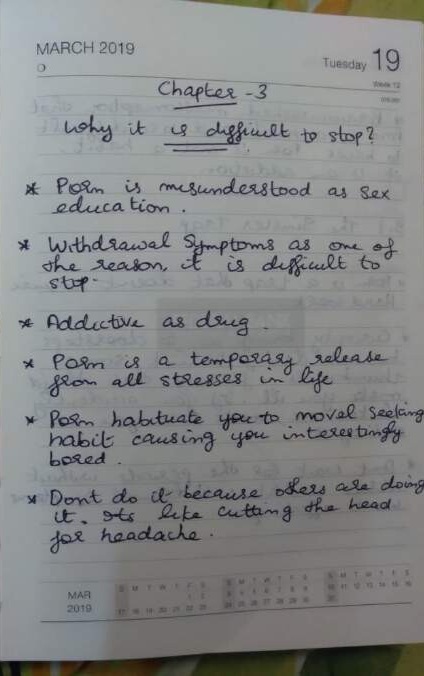 MARCH 2019
Tuesday 19
Week 12
Chapter - 3
Why it is difficult to stop?
* Porn is misunderstood as sex
education.
* Withdrawal Symptoms as one of
the reason, it is difficult to
stop.
* Addictive as drug.
* Porn is a temporary release
from all stresses in life
* Porn habituate you to novel seeking
habit causing you interestingly
bored.
* Dont do it because others are doing
it. Its like cutting the head
for headache.
MAR
2019
S M T W T F S